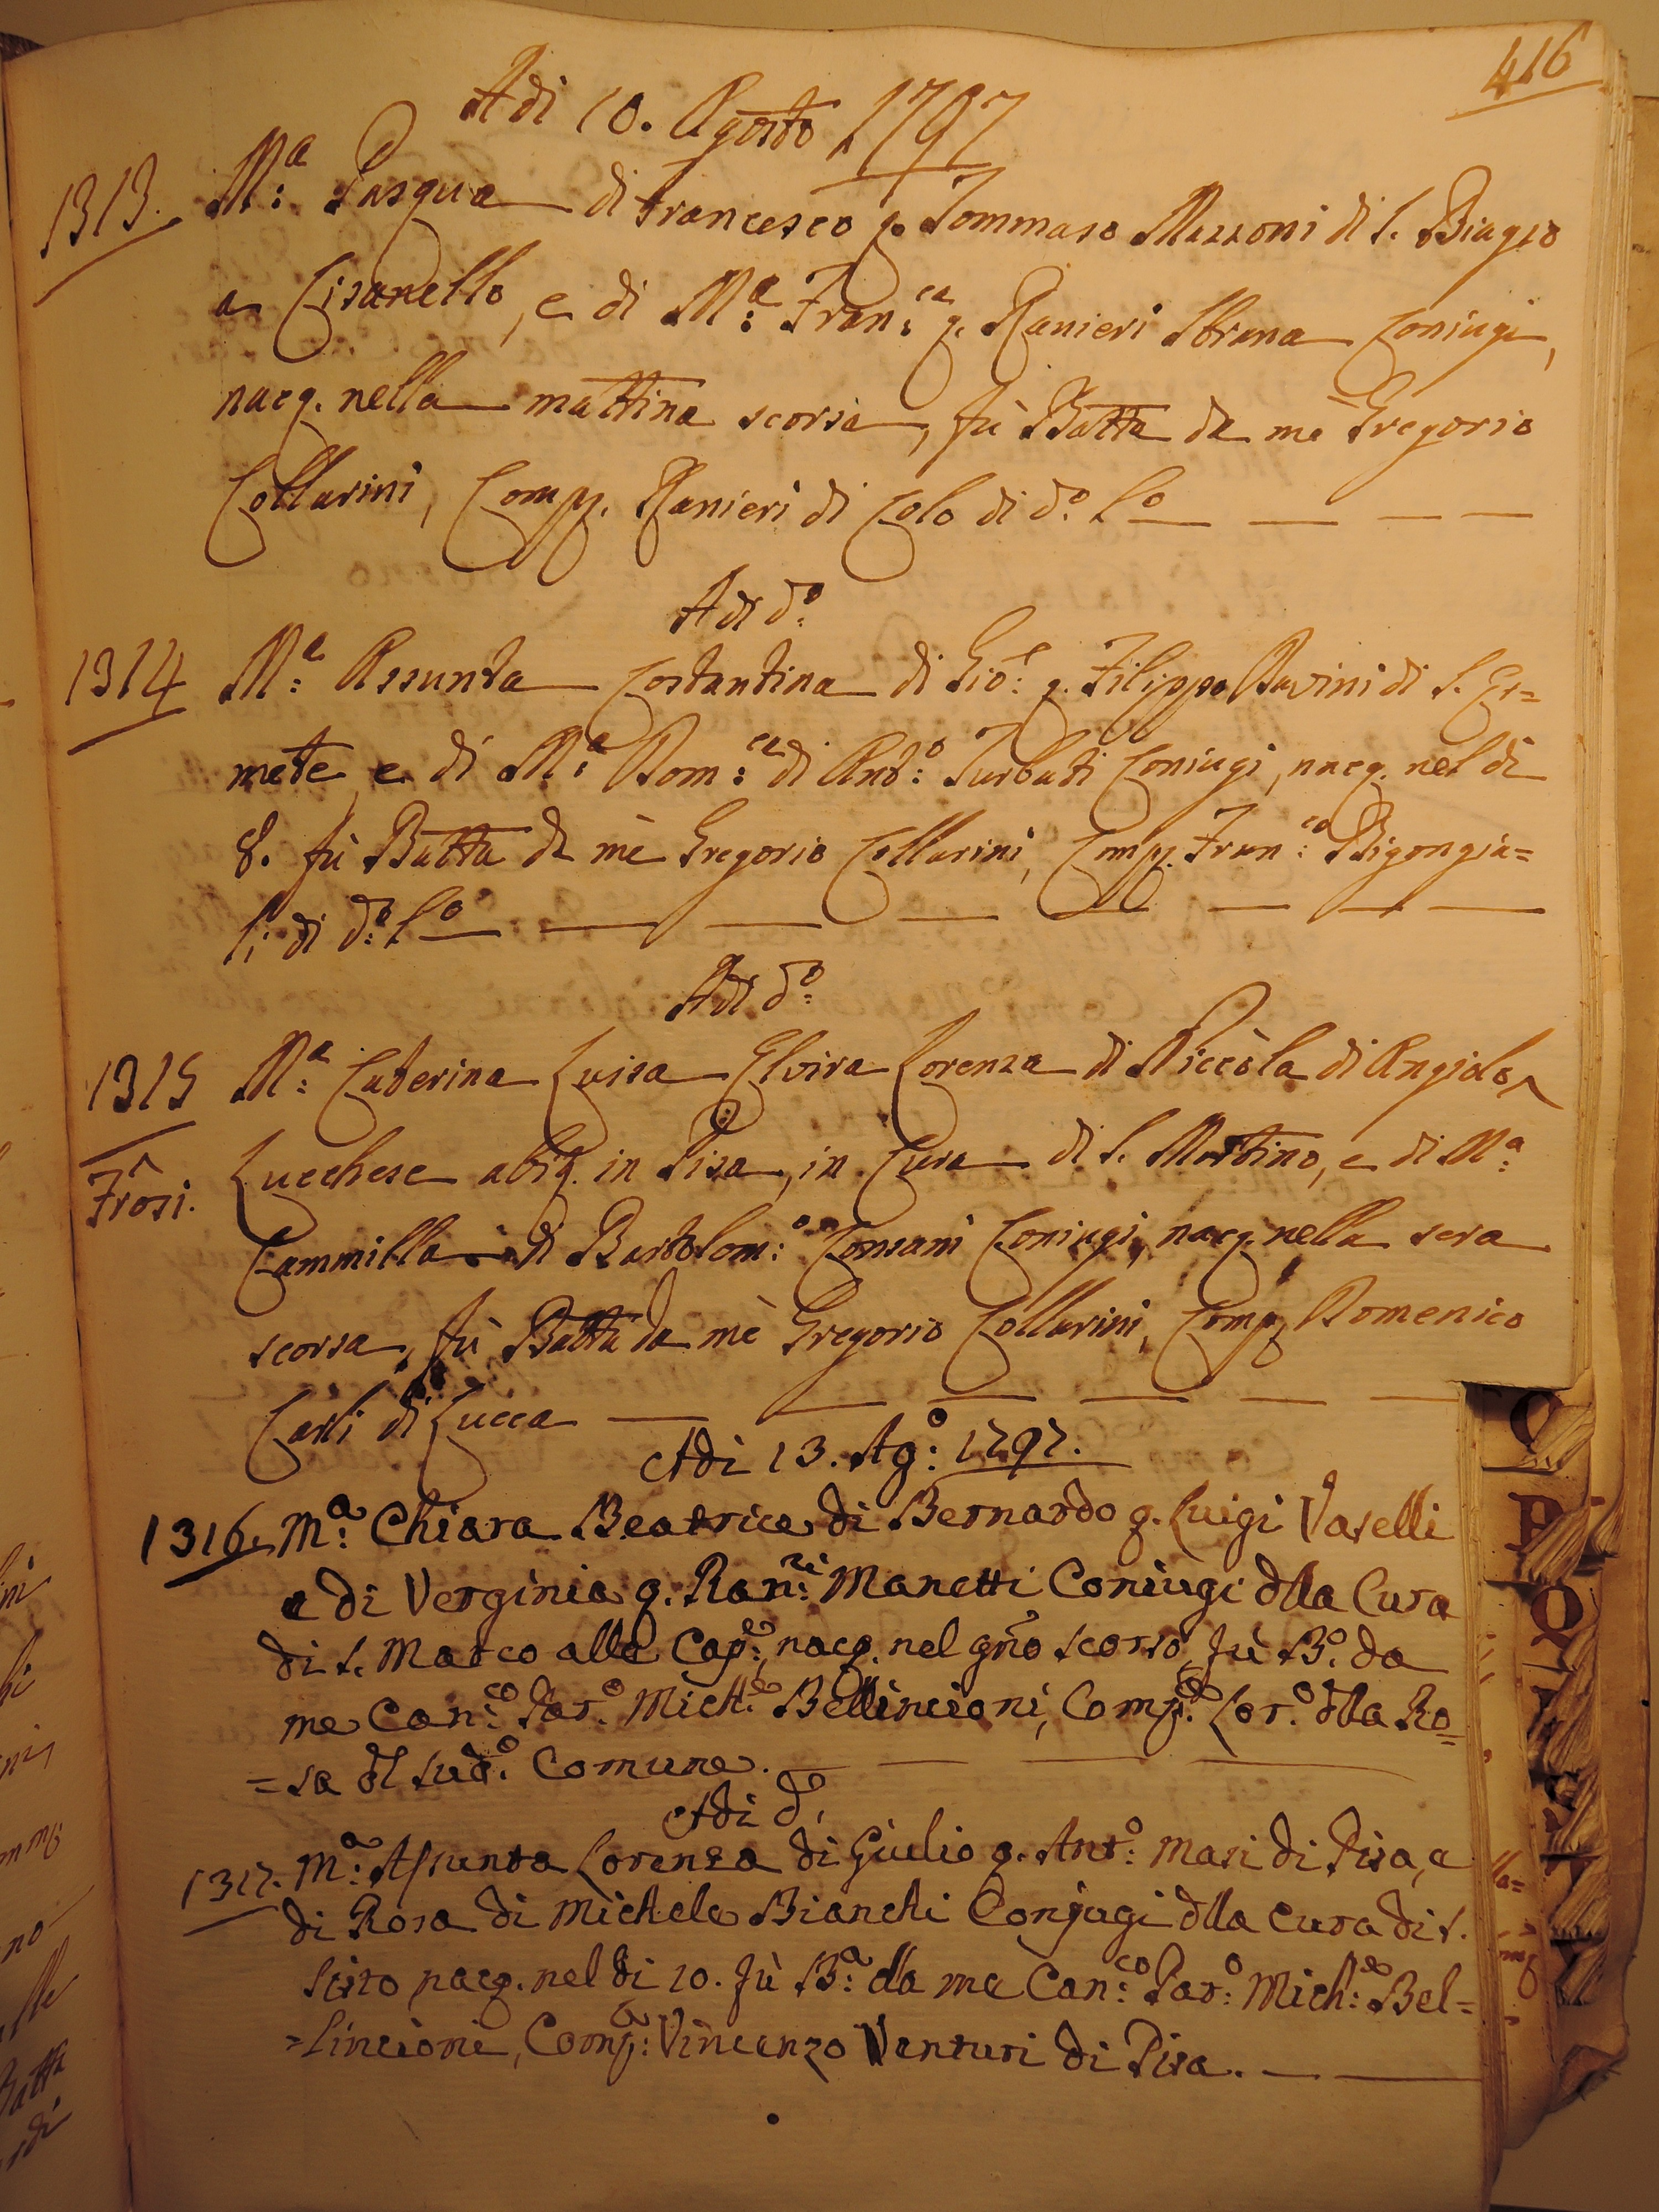 416
Adi 10. Agosto 1797
1313. M:a Pasqua di Francesco q. Tommaso Mazzoni di S. Biagio
a Cisanello, e di M:a Fran:ca q. Ranieri Sbrana Coniugi,
nacq. nella mattina scorsa, fù Batta da me Gregorio
Collarini, Comp. Ranieri di Colo di d:o L:o
Adi d:o
1314 M:a Assunta Costantina di Gio:e q. Filippo Pavini di S. Er=
mete e di M:a Dom:ca di Ant:o Turbati Coniugi, nacq. nel di
8. fù Batta da mè Gregorio Collarini, Comp. Fran:co Bigongia=
li di d:o L:o
Adi d:o
1315 M:a Caterina Luisa Elvira Lorenza di Niccola di Angiolo
Frosi.
Lucchese abit. in Pisa, in Cura di S. Martino, e di M:a
Cammilla di Bartolom:o Consani Coniugi, nacq. nella sera
scorsa, fù Batta da mè Gregorio Collarini, Comp. Domenico
Carli di Lucca
Adi 13. Ag:o 1797.
1316. M:a Chiara Beatrice di Bernardo q. Luigi Vaselli
e di Verginia q. Ran:ri Manetti Coniugi dlla Cura
di S. Marco alle Cap:e, nacq. nel gño scorso, fù B:o da
me Can:co Par:o Mich:le Bellincioni, Comp:e Lor:o dlla Ro=
=sa dl sud:o Comune.
Adi d:o
1317. M:a Assunta Lorenza di Giulio q. Ant:o Masi di Pisa, e
di Rosa di Michele Bianchi Conjugi dlla cura di S.
Sisto nacq. nel di 10. fù B:a da me Can:co Par:o Mich:le Bel=
=lincioni, Comp:e Vincenzo Venturi di Pisa.